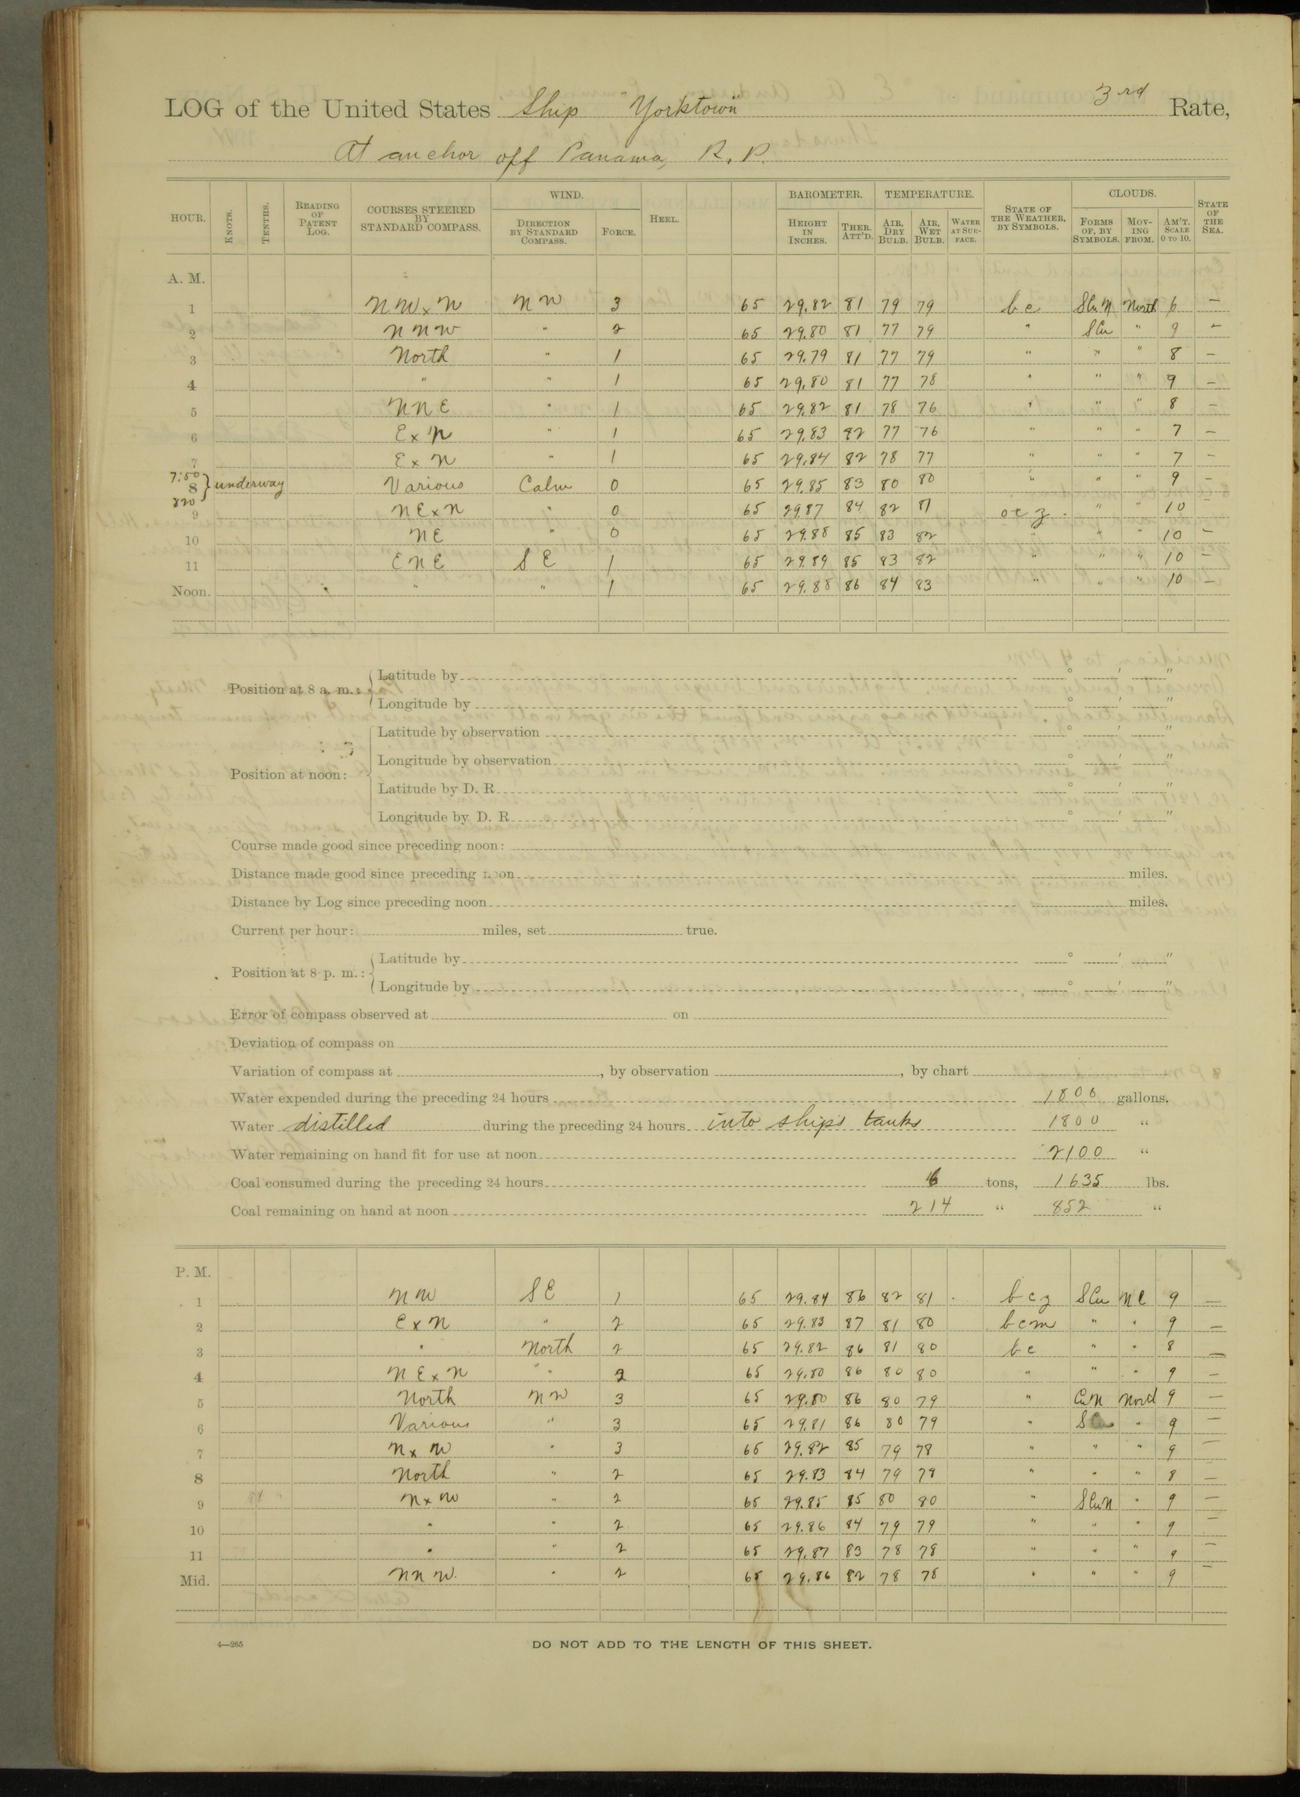 LOG of the United States Ship "Yorktown" 3rd Rate,
At anchor off Panama, R. P.
HOUR. KNOTS. TENTHS. READING OF PATENT LOG. COURSES STEERED BY STANDARD COMPASS. WIND. DIRECTION BY STANDARD COMPASS. FORCE. HEEL. BAROMETER. HEIGHT IN INCHES. THER. ATT'D. TEMPERATURE. AIR, DRY BULB. AIR, WET BULB. WATER AT SURFACE. STATE OF THE WEATHER, BY SYMBOLS. CLOUDS. FORMS OF, BY SYMBOLS. MOVING FROM. AM'T. SCALE 0 TO 10. STATE OF THE SEA.
A. M.
1 NWxN NW 3 65 29.82 81 79 79 bc SCuN North 6 —
2 NNW " 2 65 29.80 81 77 79 " SCu " 9 —
3 North " 1 65 29.79 81 77 79 " " " 8 —
4 " " 1 65 29.80 81 77 78 " " " 9 —
5 NNE " 1 65 29.82 81 78 76 " " " 8 —
6 ExN " 1 65 29.83 82 77 76 " " " 7 —
7 ExN " 1 65 29.84 82 78 77 " " " 7 —
7:50
8 } underway Various Calm 0 65 29.85 83 80 80 " " " 9 —
820
9 NExN " 0 65 29.87 84 82 81 ocz " " 10 —
10 NE " 0 65 29.88 85 83 82 " " " 10 —
11 ENE SE 1 65 29.89 85 83 82 " " " 10 —
Noon. " " 1 65 29.88 86 84 83 " " " 10 —
Position at 8 a. m.:
Latitude by ° ' "
Longitude by ° ' "
Position at noon:
Latitude by observation ° ' "
Longitude by observation ° ' "
Latitude by D. R. ° ' "
Longitude by D. R. ° ' "
Course made good since preceding noon:
Distance made good since preceding noon miles.
Distance by Log since preceding noon miles.
Current per hour: miles, set true.
Position at 8 p. m.:
Latitude by ° ' "
Longitude by ° ' "
Error of compass observed at on
Deviation of compass on
Variation of compass at , by observation , by chart
Water expended during the preceding 24 hours 1800 gallons.
Water distilled during the preceding 24 hours into ship's tanks 1800 "
Water remaining on hand fit for use at noon 2100 "
Coal consumed during the preceding 24 hours 6 tons, 1635 lbs.
Coal remaining on hand at noon 214 " 852 "
P. M.
1 NW SE 1 65 29.84 86 82 81 bcz SCu NE 9 —
2 ExN " 2 65 29.83 87 81 80 bcm " " 9 —
3 " North 2 65 29.82 86 81 80 bc " " 8 —
4 NExN " 2 65 29.80 86 80 80 " " " 9 —
5 North NW 3 65 29.80 86 80 79 " CuN Nord 9 —
6 Various " 3 65 29.81 86 80 79 " SCu " 9 —
7 NxW " 3 65 29.82 85 79 78 " " " 9 —
8 North " 2 65 29.83 84 79 78 " " " 8 —
9 NxW " 2 65 29.85 85 80 80 " SCuN " 9 —
10 " " 2 65 29.86 84 79 79 " " " 9 —
11 " " 2 65 29.87 83 78 78 " " " 9 —
Mid. NNW. " 2 65 29.86 82 78 78 " " " 9 —
4—265
DO NOT ADD TO THE LENGTH OF THIS SHEET.